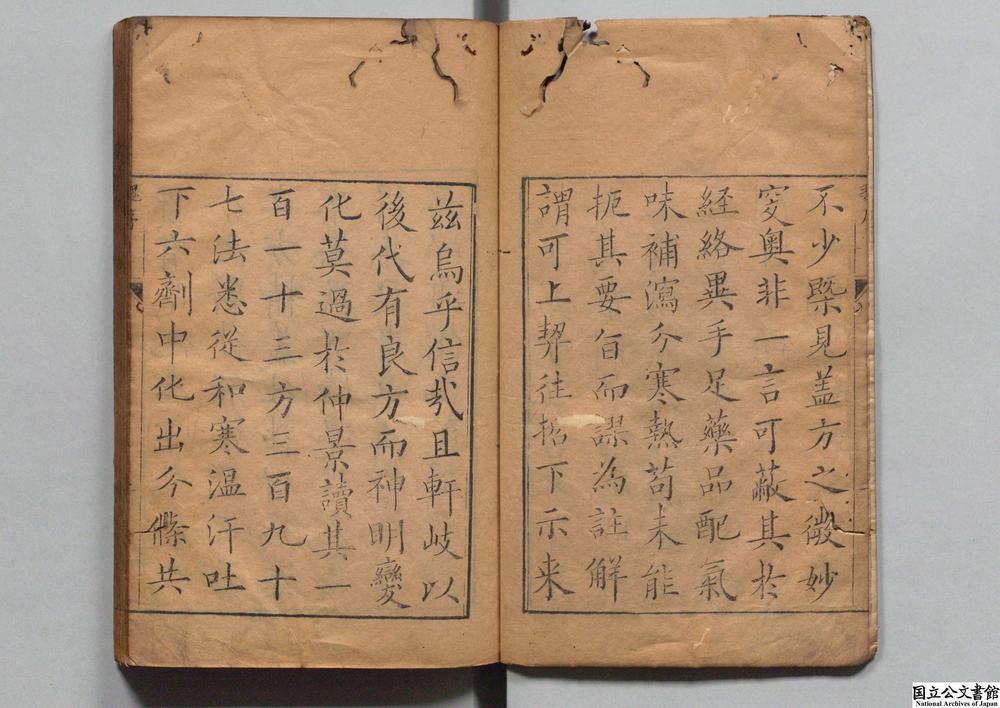 不少槩見盖方之微妙
窔奥非一言可蔽其於
経絡異手足藥品配氣
味補瀉分寒熱苟未能
扼其要㫖而謬為註解
謂可上契往哲下示来
兹烏乎信哉且軒岐以
後代有良方而神明變
化莫過於仲景讀其一
百一十三方三百九十
七法悉從和寒温汗吐
下六劑中化出今條共
国立公文書館
National Archives of Japan